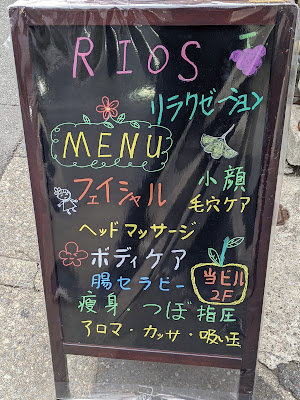 RIOS
リラクゼーション
MENU
フェイシャル
小顔
毛穴ケア
ヘッドマッサージ
ボディケア
腸セラピー
当ビル
2F
痩身・つぼ指圧
アロマ・カッサ・吸い玉